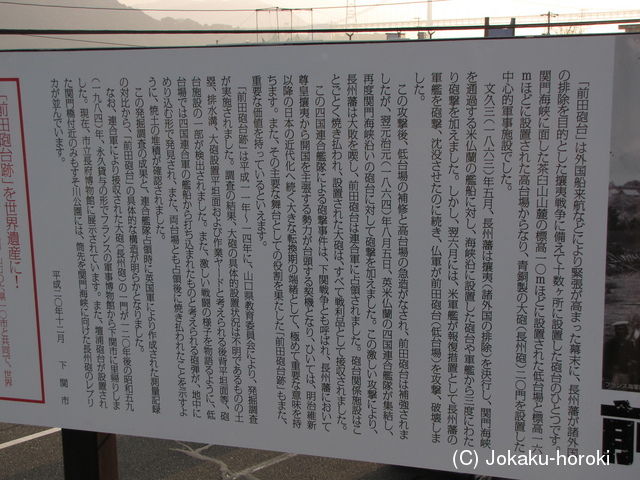 「前田砲台」は外国船来航などにより緊張が高まった幕末に、長州藩が諸外国
の排除を目的とした攘夷戦争に備えて十数ヶ所に設置した砲台のひとつです。
関門海峡に面した茶臼山山麓の標高一〇mほどに設置された低台場と標高一六
mほどに設置された高台場からなり、青銅製の大砲（長州砲）二〇門を設置した
中心的軍事施設でした。
文久三年（一八六三）年五月、長州藩は攘夷（諸外国の排除）を決行し、関門海峡
を通過する米仏蘭の艦船に対し、海峡沿に設置した砲台や軍艦から三度にわた
り砲撃を加えました。しかし、翌六月には、米軍艦が報復措置として長州藩の
軍艦を砲撃、沈没させたのに続き、仏軍が前田砲台（低台場）を攻撃、破壊しま
した。
この攻撃後、低台場の補修と高台場の急造がなされ、前田砲台は補強されま
したが、翌元治元（一八六四）年八月五日、英米仏蘭の四国連合艦隊が集結し、
再度関門海峡沿いの砲台に対して砲撃を加えました。この激しい攻撃により、
長州藩は大敗を喫し、前田砲台は連合軍に占領されました。砲台関係施設はこ
とごとく焼き払われ、設置された大砲は、すべて戦利品として接収されました。
この四国連合艦隊による砲撃事件は、下関戦争とも呼ばれ、長州藩において
尊皇攘夷から開国を主張する勢力が台頭する契機となり、ひいては、明治維新
以降の日本の近代化へ続く大きな転換期の端緒として、極めて重要な意味を持
ちます。また、その主要な舞台としての役割を果たした「前田砲台跡」もまた、
重要な価値を持っているといえます。
「前田砲台跡」は平成一一年〜一四年に、山口県教育委員会により、発掘調査
が実施されました。調査の結果、大砲の具体的設置状況は不明であるものの土
塁、排水溝、大砲設置平坦面および作業ヤードと考えられる後背平坦面等、砲
台施設の一部が検出されました。また、激しい戦闘の様子を物語るように、低
台場では四国連合軍の艦船から打ち込まれたものと考えられる砲弾が、地中に
めり込む形で発見され、また、両台場とも占領後に焼き払われたことを示すよ
うに、焼土の堆積が確認されました。
この発掘調査の成果と、連合艦隊占領時に英国軍により作成された測量記録
の対比から、「前田砲台」の具体的な構造が明らかとなりました。
なお、連合軍により接収された大砲（長州砲）の一門が一二〇年後の昭和五九
（一九八四）年、永久貸与の形でフランスの軍事博物館から下関市に里帰りしま
した。現在、市立長府博物館に展示されています。また、壇浦砲台が設置され
た関門橋付近のみもすそ川公園には、筒先を関門海峡に向けた長州砲のレプリ
カが並んでいます。
平成二〇年十二月　下関市
「前田砲台跡」を世界遺産に！
(C) Jokaku-horoki